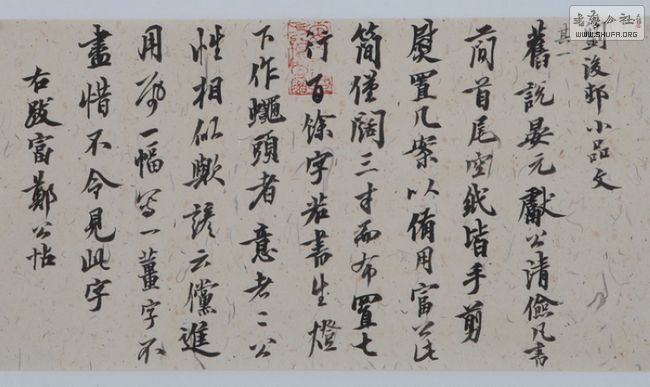 劉後邨小品文
其一
舊說晏元獻公清儉凡書
簡首尾空紙皆手剪
熨置几案以備用富公此
簡僅闊三寸而布置七
行百餘字若書生燈
下作蠅頭者意者二公
性相似歟諺云儻進
用一幅寫一薑字不
盡惜不令見此字
右跋富鄭公帖
書法公社
WWW.SHUFA.ORG